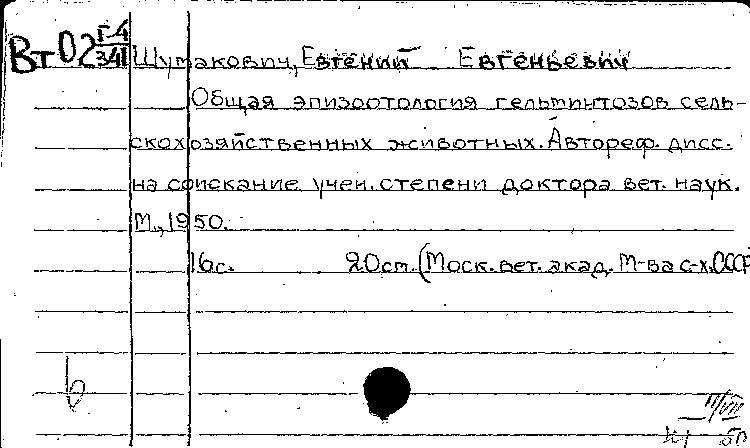 Вт 02 Г-4/341
Шумакович, Евгений Евгеньевич
Общая эпизоотология гельминтозов сель-
скохозяйственных животных. Автореф. дисс.
на соискание учен. степени доктора вет. наук.
М., 1950.
16с. 20см. (Моск. вет. акад. М-ва с-х. СССР